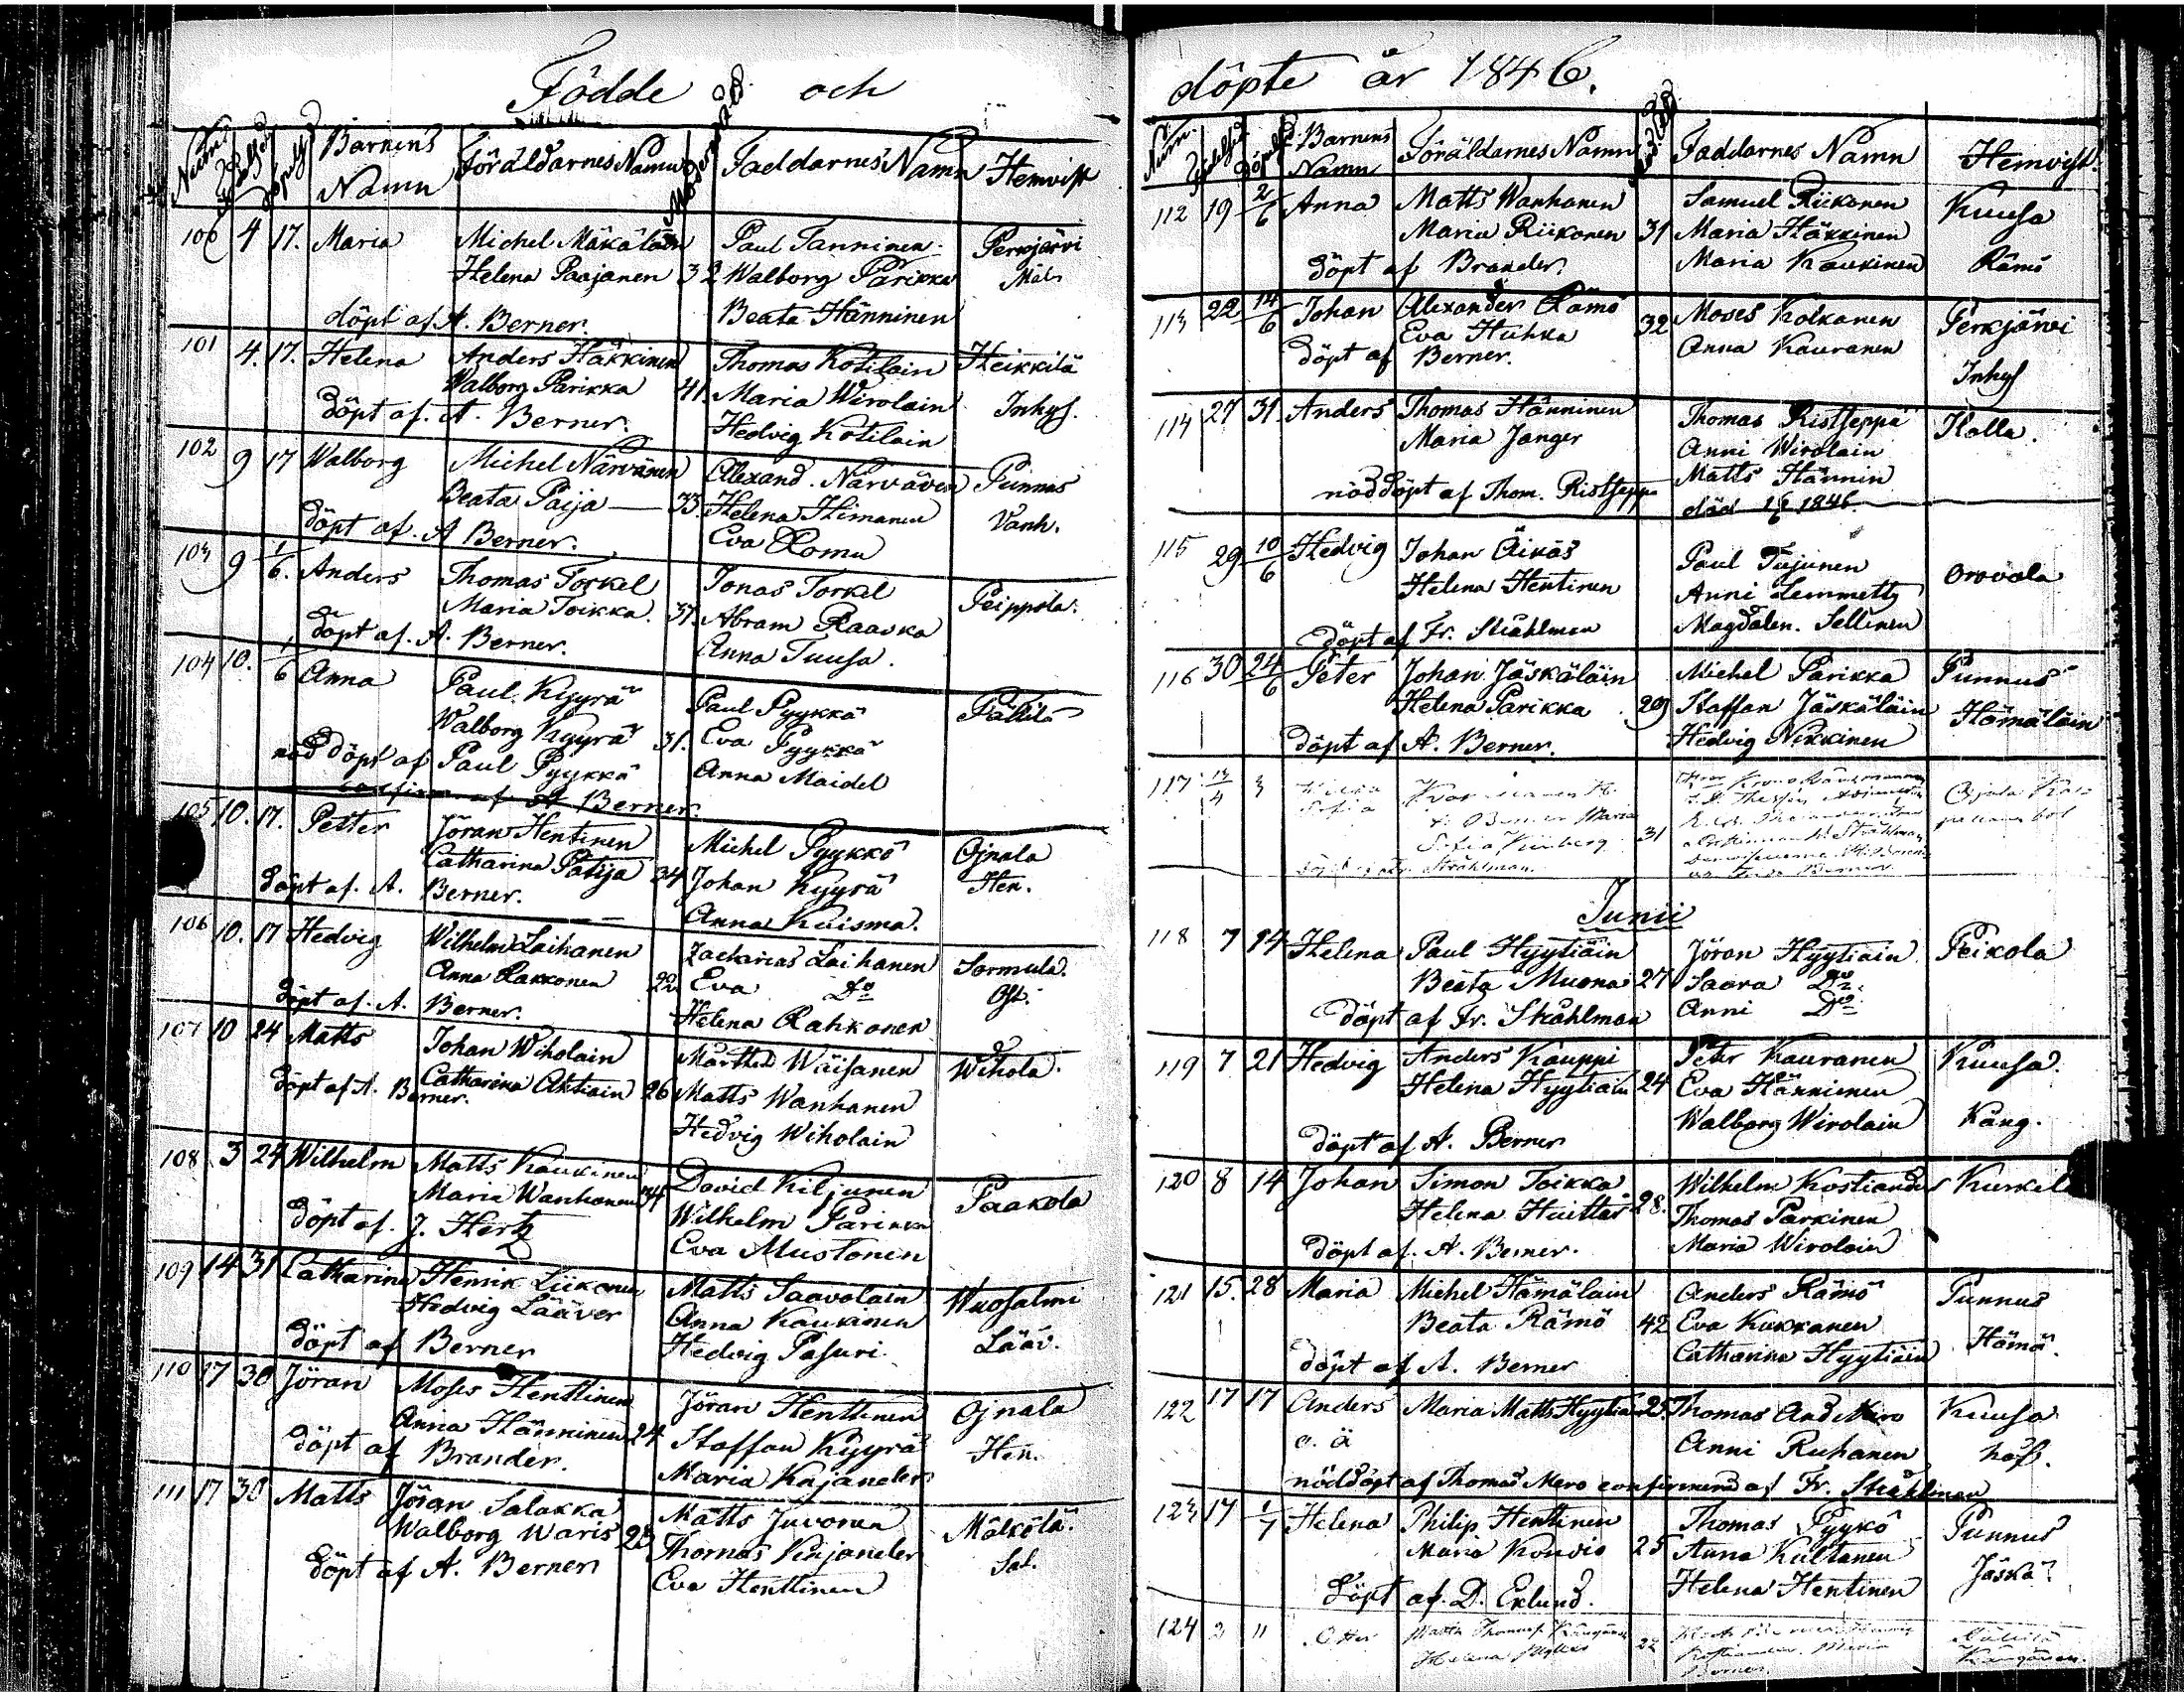 Födde och
Numr: Födelsed Döpelsed Barnens Namn Föräldarnes Namn Moderns ålder Faddarnes Namn Hemvist
100 4 17. Maria Michel Mäkäläin Paul Tanninen Perkjärvi
Helena Paajanen 32 Walborg Parikka Mäk
döpt af A. Berner. Beata Hänninen
101 4. 17. Helena Anders Häkkinen Thomas Kotilain Heikkilä
Walborg Parikka 41. Maria Wirolain Inhys.
döpt af. A. Berner. Hedvig Kotilain
102 9 17 Walborg Michel Närvänen Alexand. Närvänen Punnus
Beata Paija 33. Helena Himanen Vanh.
döpt af. A Berner. Eva Romu
103 9 1/6. Anders Thomas Torkel Jonas Torkel Peippola.
Maria Toikka. 37. Abram Raaska
döpt af. A. Berner. Anna Tuusa.
104 10. 1/6 Anna Paul Kyyrä Paul Pyykkö Pällilä
Walborg Kyyrä 31. Eva Pyykkö
nöd döpt af Paul Pyykkö Anna Maidel
af A Berner.
105 10. 17. Petter Jöran Hentinen Michel Pyykkö Ojnala
Catharina Patija 34 Johan Kyyrä Hen.
döpt af. A. Berner. Anna Kuisma.
106 10. 17 Hedvig Wilhelm Laihanen Zacharias Laihanen Sormula.
Anna Rakkonen 22 Eva Do
döpt af. A. Berner. Helena Rahkonen
107 10 24 Matts Johan Wiholain Märthed Wäisänen Wihola.
Catharina Aktiain 26 Matts Wanhanen
döpt af A. Berner. Hedvig Wiholain
108 3 24 Wilhelm Matts Kaukinen David Kiljunen Paakola
Maria Wanhanen 34 Wilhelm Parikka
döpt af. J. Hertz Eva Mustonen
109 14 31 Catharina Henrik Liikonen Matts Saavolain Wuosalmi
Hedvig Lääver Anna Kaukinen Lääv.
döpt af Berner Hedvig Pasuri
110 17 30 Jöran Moses Henttinen Jöran Henttinen Ojnala
Anna Hänninen 24 Staffan Kyyrä Hen.
döpt af Brander. Maria Kajander
111 17 30 Matts Jöran Salakka Matts Juvonen Mälkölä.
Walborg Waris 23 Thomas Kajander Sal.
döpt af A. Berner Eva Henttinen
döpte år 1846.
Numr. Födelsed Döpelsed Barnens Namn Föräldarnes Namn Faddarnes Namn Hemvist.
112 19 2/6 Anna Matts Wanhanen Samuel Riikonen Kuusa
Maria Riikonen 31 Maria Häkkinen Rämö
döpt af Brander. Maria Kaukinen
113 22 14/6 Johan Alexander Rämö Moses Kolkanen Perkjärvi
Eva Huhka 32 Anna Kauranen
döpt af Berner. Inhys
114 27 31. Anders Thomas Hänninen Thomas Ristseppä Kolla.
Maria Janger Anni Wirolain
nöddöpt af Thom. Ristseppä Matts Hännin
död 1/6 1846.
115 29 10/6 Hedvig Johan Äikäs Paul Tujunen Oravala
Helena Hentinen Anni Lemmetty
döpt af Fr. Stråhlman Magdalen. Sellinen
116 30 24/6 Peter Johan Jäskäläin Michel Parikka Punnus
Helena Parikka 29 Staffan Jäskäläin Hämäläin
döpt af A. Berner. Hedvig Nikkinen
117 13/4 3
Sofia
31
Stråhlman.
Junii
118 7 14 Helena Paul Hyytiäin Jöran Hyytiäin Peikola
Beata Muona 27 Saara Do
döpt af Fr. Stråhlman Anni Do
119 7 21 Hedvig Anders Kauppi Peter Kauranen Kuusa.
Helena Hyytiäin 24 Eva Hänninen Käng.
döpt af A. Berner Walborg Wirolain
120 8 14 Johan Simon Toikka Wilhelm Kostiander Kurkela
Helena Huittar 28. Thomas Parkinen
döpt af. A. Berner. Maria Wirolain
121 15. 28 Maria Michel Hämäläin Anders Rämö Punnus
Beata Rämö 42 Eva Kukkanen Hämä.
döpt af A. Berner Catharina Hyytiäin
122 17 17 Anders Maria Matts Hyytiäin 25. Thomas And. Mero Kuusa
o. ä Anni Ruhanen
nöddöpt af Thomas Mero confirmerad af Fr. Stråhlman
123 17 1/7 Helena Philip Henttinen Thomas Pyykö Punnus
Maria Konvio 25 Anna Kultanen Jäskä.
Döpt af. D. Eklund. Helena Hentinen
124 3 11 Matts Thomas 22
Helena